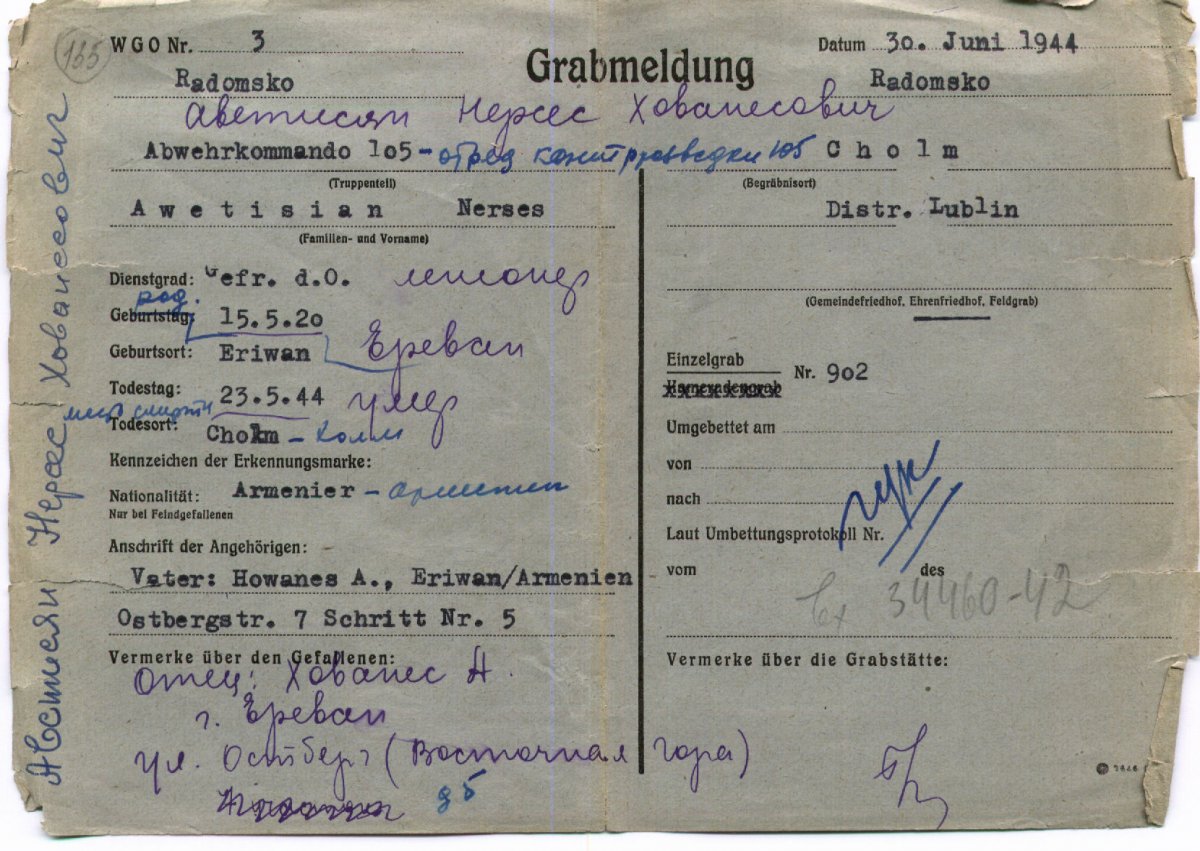 155
WGO Nr. 3
Grabmeldung
Datum 30. Juni 1944
Radomsko
Radomsko
Аветисян Нерсес Хованесович
Abwehrkommando 1o5 - отряд контрразведки 105
(Truppenteil)
Cholm
(Begräbnisort)
Awetisian Nerses
(Familien- und Vorname)
Distr. Lublin
(Gemeindefriedhof, Ehrenfriedhof, Feldgrab)
Dienstgrad: Gefr. d.O.
род.
Geburtstag: 15.5.2o
Geburtsort: Eriwan Ереван
Todestag: 23.5.44 умер
смерти
Todesort: Cholm - Холм
Kennzeichen der Erkennungsmarke:
Nationalität: Armenier - армянин
Nur bei Feindgefallenen
Anschrift der Angehörigen:
Vater: Howanes A., Eriwan/Armenien
Ostbergstr. 7 Schritt Nr. 5
Vermerke über den Gefallenen:
Отец: Хованес А.
г. Ереван
ул. Остберг (Восточная гора)
д 5
Einzelgrab
Kameradengrab
Nr. 9o2
Umgebettet am
von
nach
Laut Umbettungsprotokoll Nr.
vom des
34460-42
Vermerke über die Grabstätte:
Аветисян Нерсес Хованесович